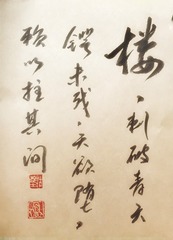 楼、刺破青天
锷未残、天欲堕、
赖以拄其间